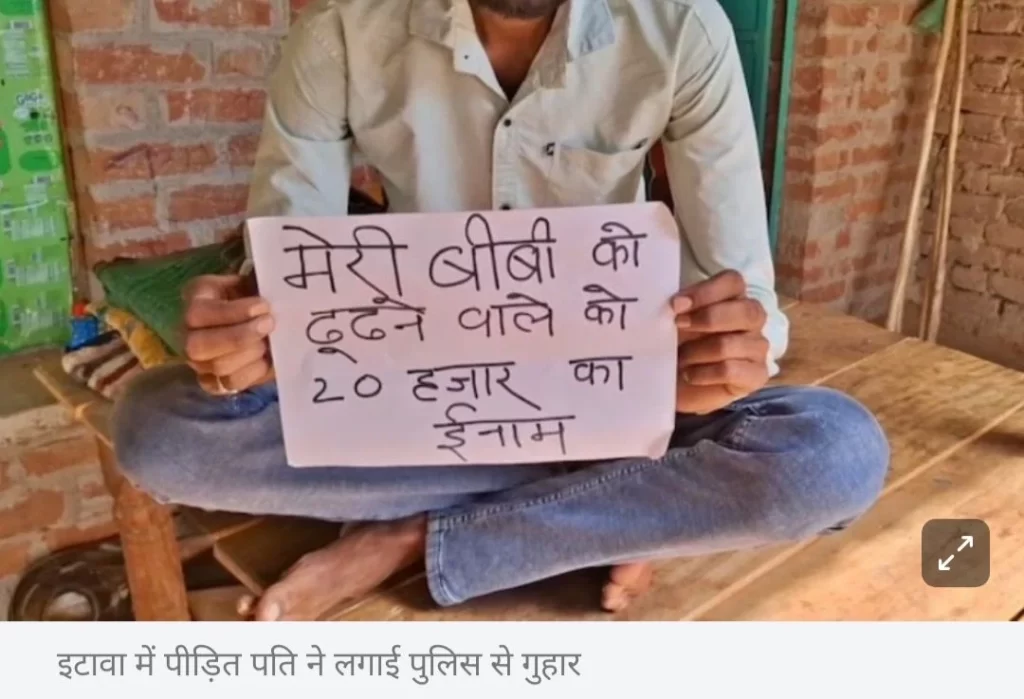 मेरी बीबी को
ढूढने वाले को
20 हजार का
ईनाम
इटावा में पीड़ित पति ने लगाई पुलिस से गुहार